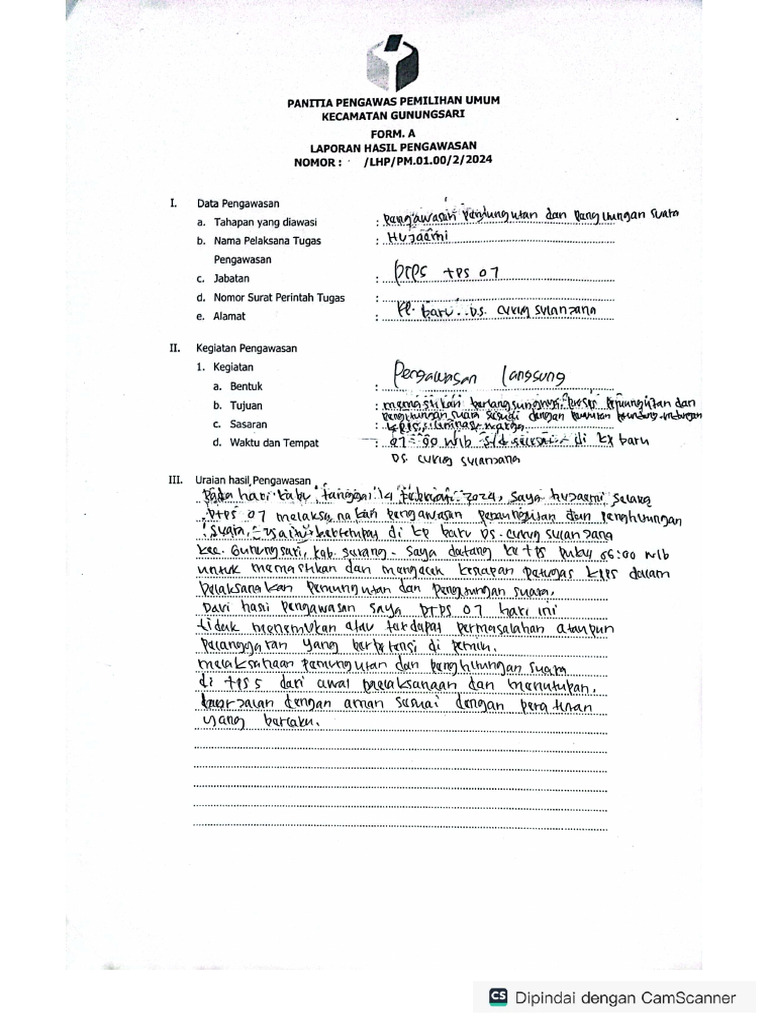 PANITIA PENGAWAS PEMILIHAN UMUM
KECAMATAN GUNUNGSARI
FORM. A
LAPORAN HASIL PENGAWASAN
NOMOR : /LHP/PM.01.00/2/2024
I. Data Pengawasan
a. Tahapan yang diawasi : Pengawasan Pemungutan dan Penghungan suara
b. Nama Pelaksana Tugas : Hujaemi
Pengawasan
c. Jabatan : PTPS TPS 07
d. Nomor Surat Perintah Tugas :
e. Alamat : Kp. baru Ds. curug sulanjana
II. Kegiatan Pengawasan
1. Kegiatan
a. Bentuk : Pengawasan langsung
b. Tujuan : memastikan berlangsungnya proses Pemungutan dan
Penghitungan suara sesuai dengan
c. Sasaran : KPPS,
d. Waktu dan Tempat : 07:00 WIB S/d selesai - di kp baru
Ds. curug sulanjana
III. Uraian hasil Pengawasan
Pada hari rabu tanggal 14 Februari 2024, saya hujaemi selaku
PTPS 07 melaksanakan pengawasan pemungutan dan penghitungan
suara, bertempat di kp baru Ds. curug sulanjana
kec. Gunungsari, kab. serang - saya datang ke tps pukul 06:00 WIB
untuk memastikan dan mengecek kesiapan petugas kpps dalam
pelaksanakan pemungutan dan penghitungan suara.
Dari hasil pengawasan saya PTPS 07 hari ini
tidak menemukan atau terdapat permasalahan ataupun
pelanggaran yang berpotensi di
melaksanaan pemungutan dan penghitungan suara
di TPS 5 dari awal pelaksanaan dan menutupan,
berjalan dengan aman sesuai dengan peraturan
yang berlaku.
CS Dipindai dengan CamScanner